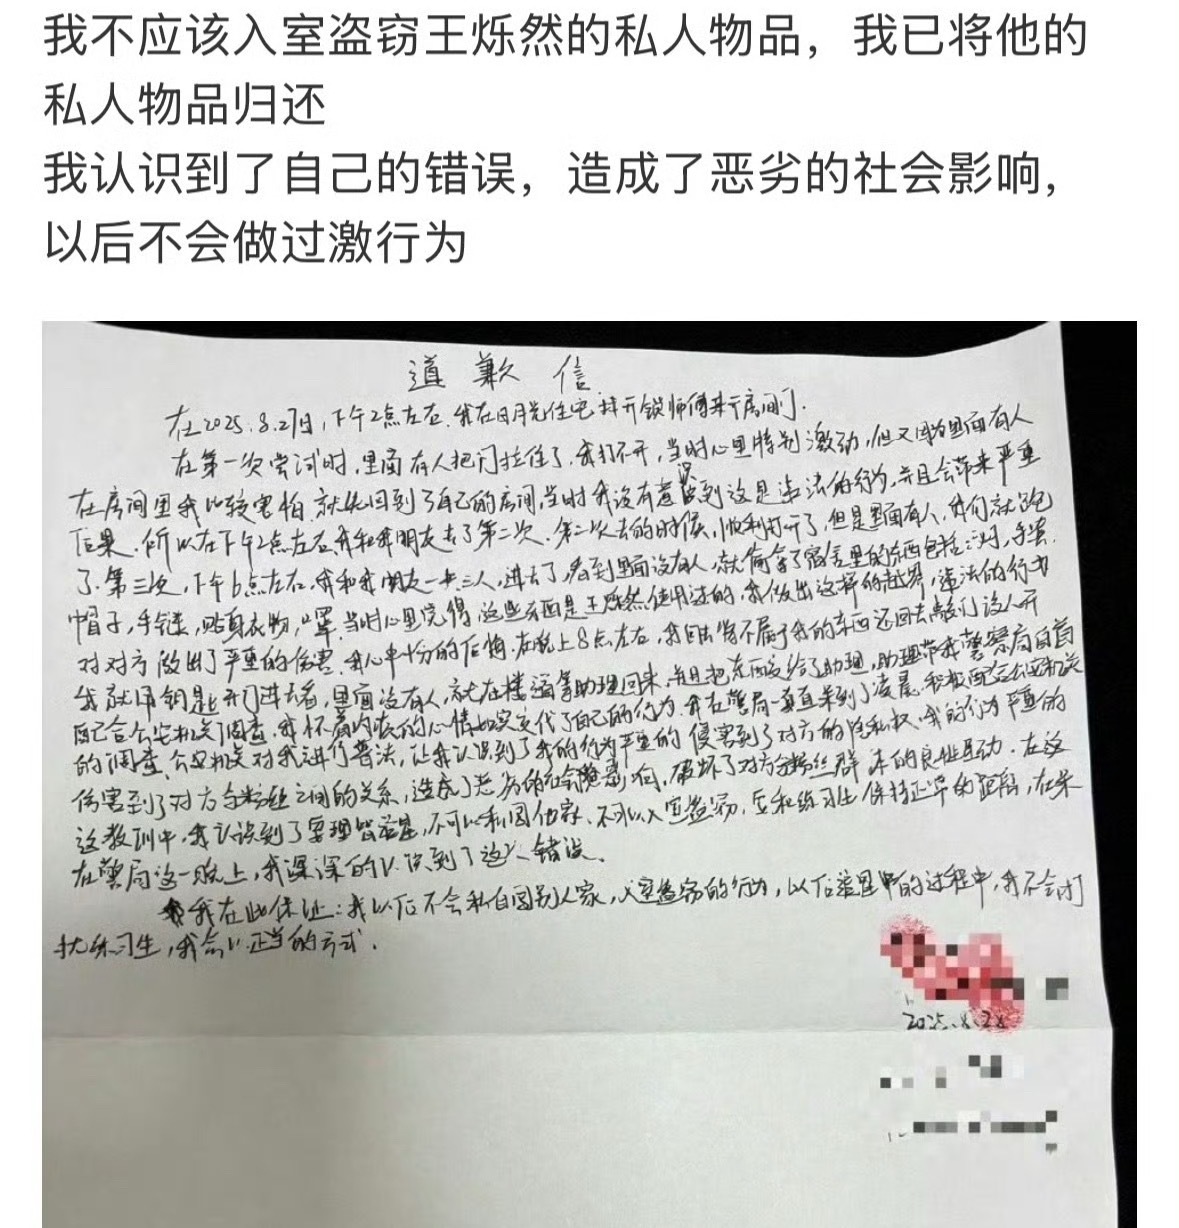 我不应该入室盗窃王烁然的私人物品，我已将他的
私人物品归还
我认识到了自己的错误，造成了恶劣的社会影响，
以后不会做过激行为
道歉信
在2025.8.27日，下午2点左右，我在日月光住宅找开锁师傅来开房间门.
在第一次尝试时，里面有人把门拉住了，我打不开，当时心里特别激动，但又因为里面有人
在房间里我比较害怕，就先回到了自己的房间，当时我没有意识到这是违法的行为，并且会带来严重
后果，所以在下午2点左右我和我朋友去了第二次，第二次去的时候，顺利打开了，但是里面有人，我们就跑
了.第三次，下午6点左右，我和我朋友一共三人，进去了，看到里面没有人，就偷拿了宿舍里的东西包括:
帽子，手链，贴身衣物，口罩，当时心里觉得这些东西是王烁然使用过的，我做出这样的越界，违法的行为
对对方做出了严重的伤害，我心中十分的后悔，在晚上8点左右，我回去将不属于我的东西还回去敲门没人开
我就用钥匙开门进去看，里面没有人，就在楼道等助理回来，并且把东西交给了助理，助理带我警察局自首
配合公安机关调查，我怀着内疚的心情如实交代了自己的行为，我在警局一直呆到了凌晨，积极配合公安机关
的调查，公安机关对我进行普法，让我认识到了我的行为严重的侵害到了对方的隐私权，我的行为严重的
伤害到了对方与粉丝之间的关系，造成了恶劣的社会影响，破坏了对方与粉丝群体的良性互动，在这
这教训中，我认识到了要理智追星，不可以私闯他家，不可以入室盗窃，应和练习生保持正常的距离，在呆
在警局这一晚上，我深深的认识到了这个错误.
我在此保证:我以后不会私自闯别人家，入室盗窃的行为，以后追星中的过程中，我不会打
扰练习生，我会以正当的方式.
2025.8.28